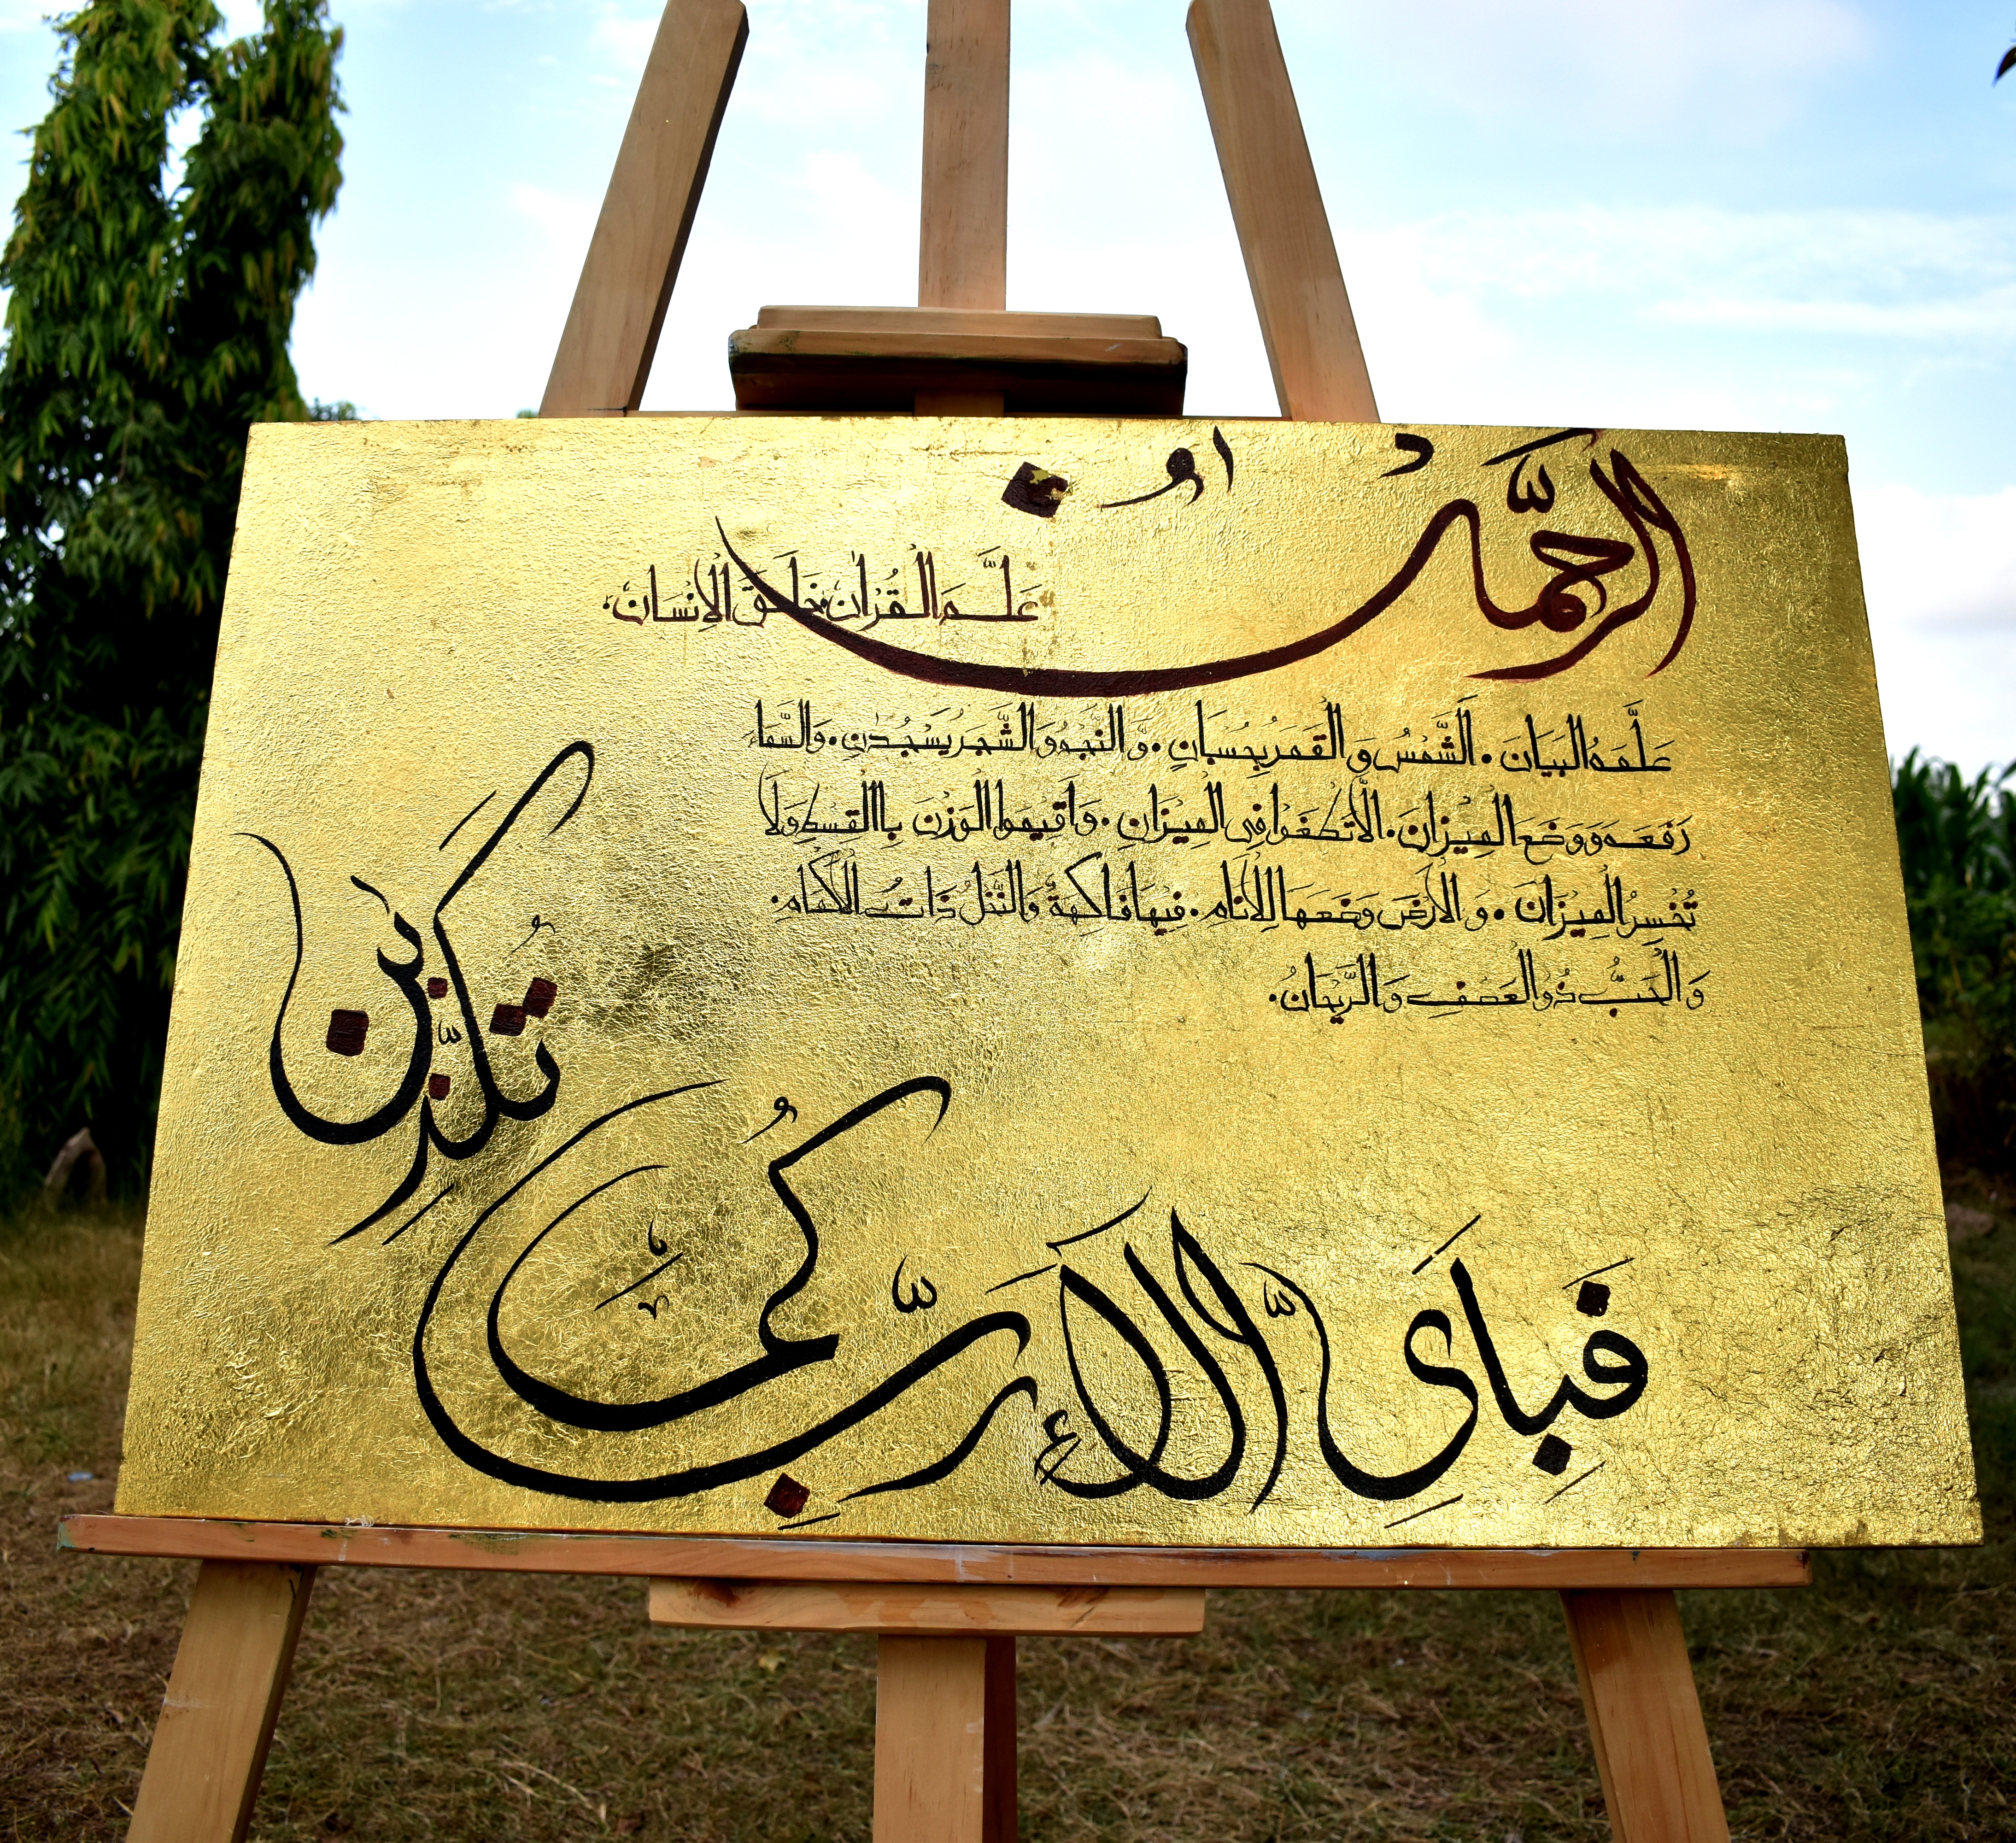 الرَّحْمَٰنُ
عَلَّمَ الْقُرْاٰنَ. خَلَقَ الْاِنْسَانَ.
عَلَّمَهُ الْبَيَانَ. اَلشَّمْسُ وَ الْقَمَرُ بِحُسْبَانٍ. وَّ النَّجْمُ وَ الشَّجَرُ يَسْجُدٰنِ. وَالسَّمَاءَ
رَفَعَهَ وَ وَضَعَ الْمِيْزَانَ. اَلَّا تَطْغَوْا فِى الْمِيْزَانِ. وَ اَقِيْمُوا الْوَزْنَ بِاالْقِسْطِ وَ لَا
تُخْسِرُ الْمِيْزَانَ. وَ الْاَرْضَ وَضَعَهَا لِلْاَنَامِ. فِيْهَا فَاكِهَةٌ وَّالنَّخْلُ ذَاتُ الْاَكْمَامِ.
وَ الْحَبُّ ذُو الْعَصْفِ وَ الرَّيْحَانُ.
فَبِاَىِّ اٰلَاۤءِ رَبِّكُمَا
تُكَذِّبٰنِ